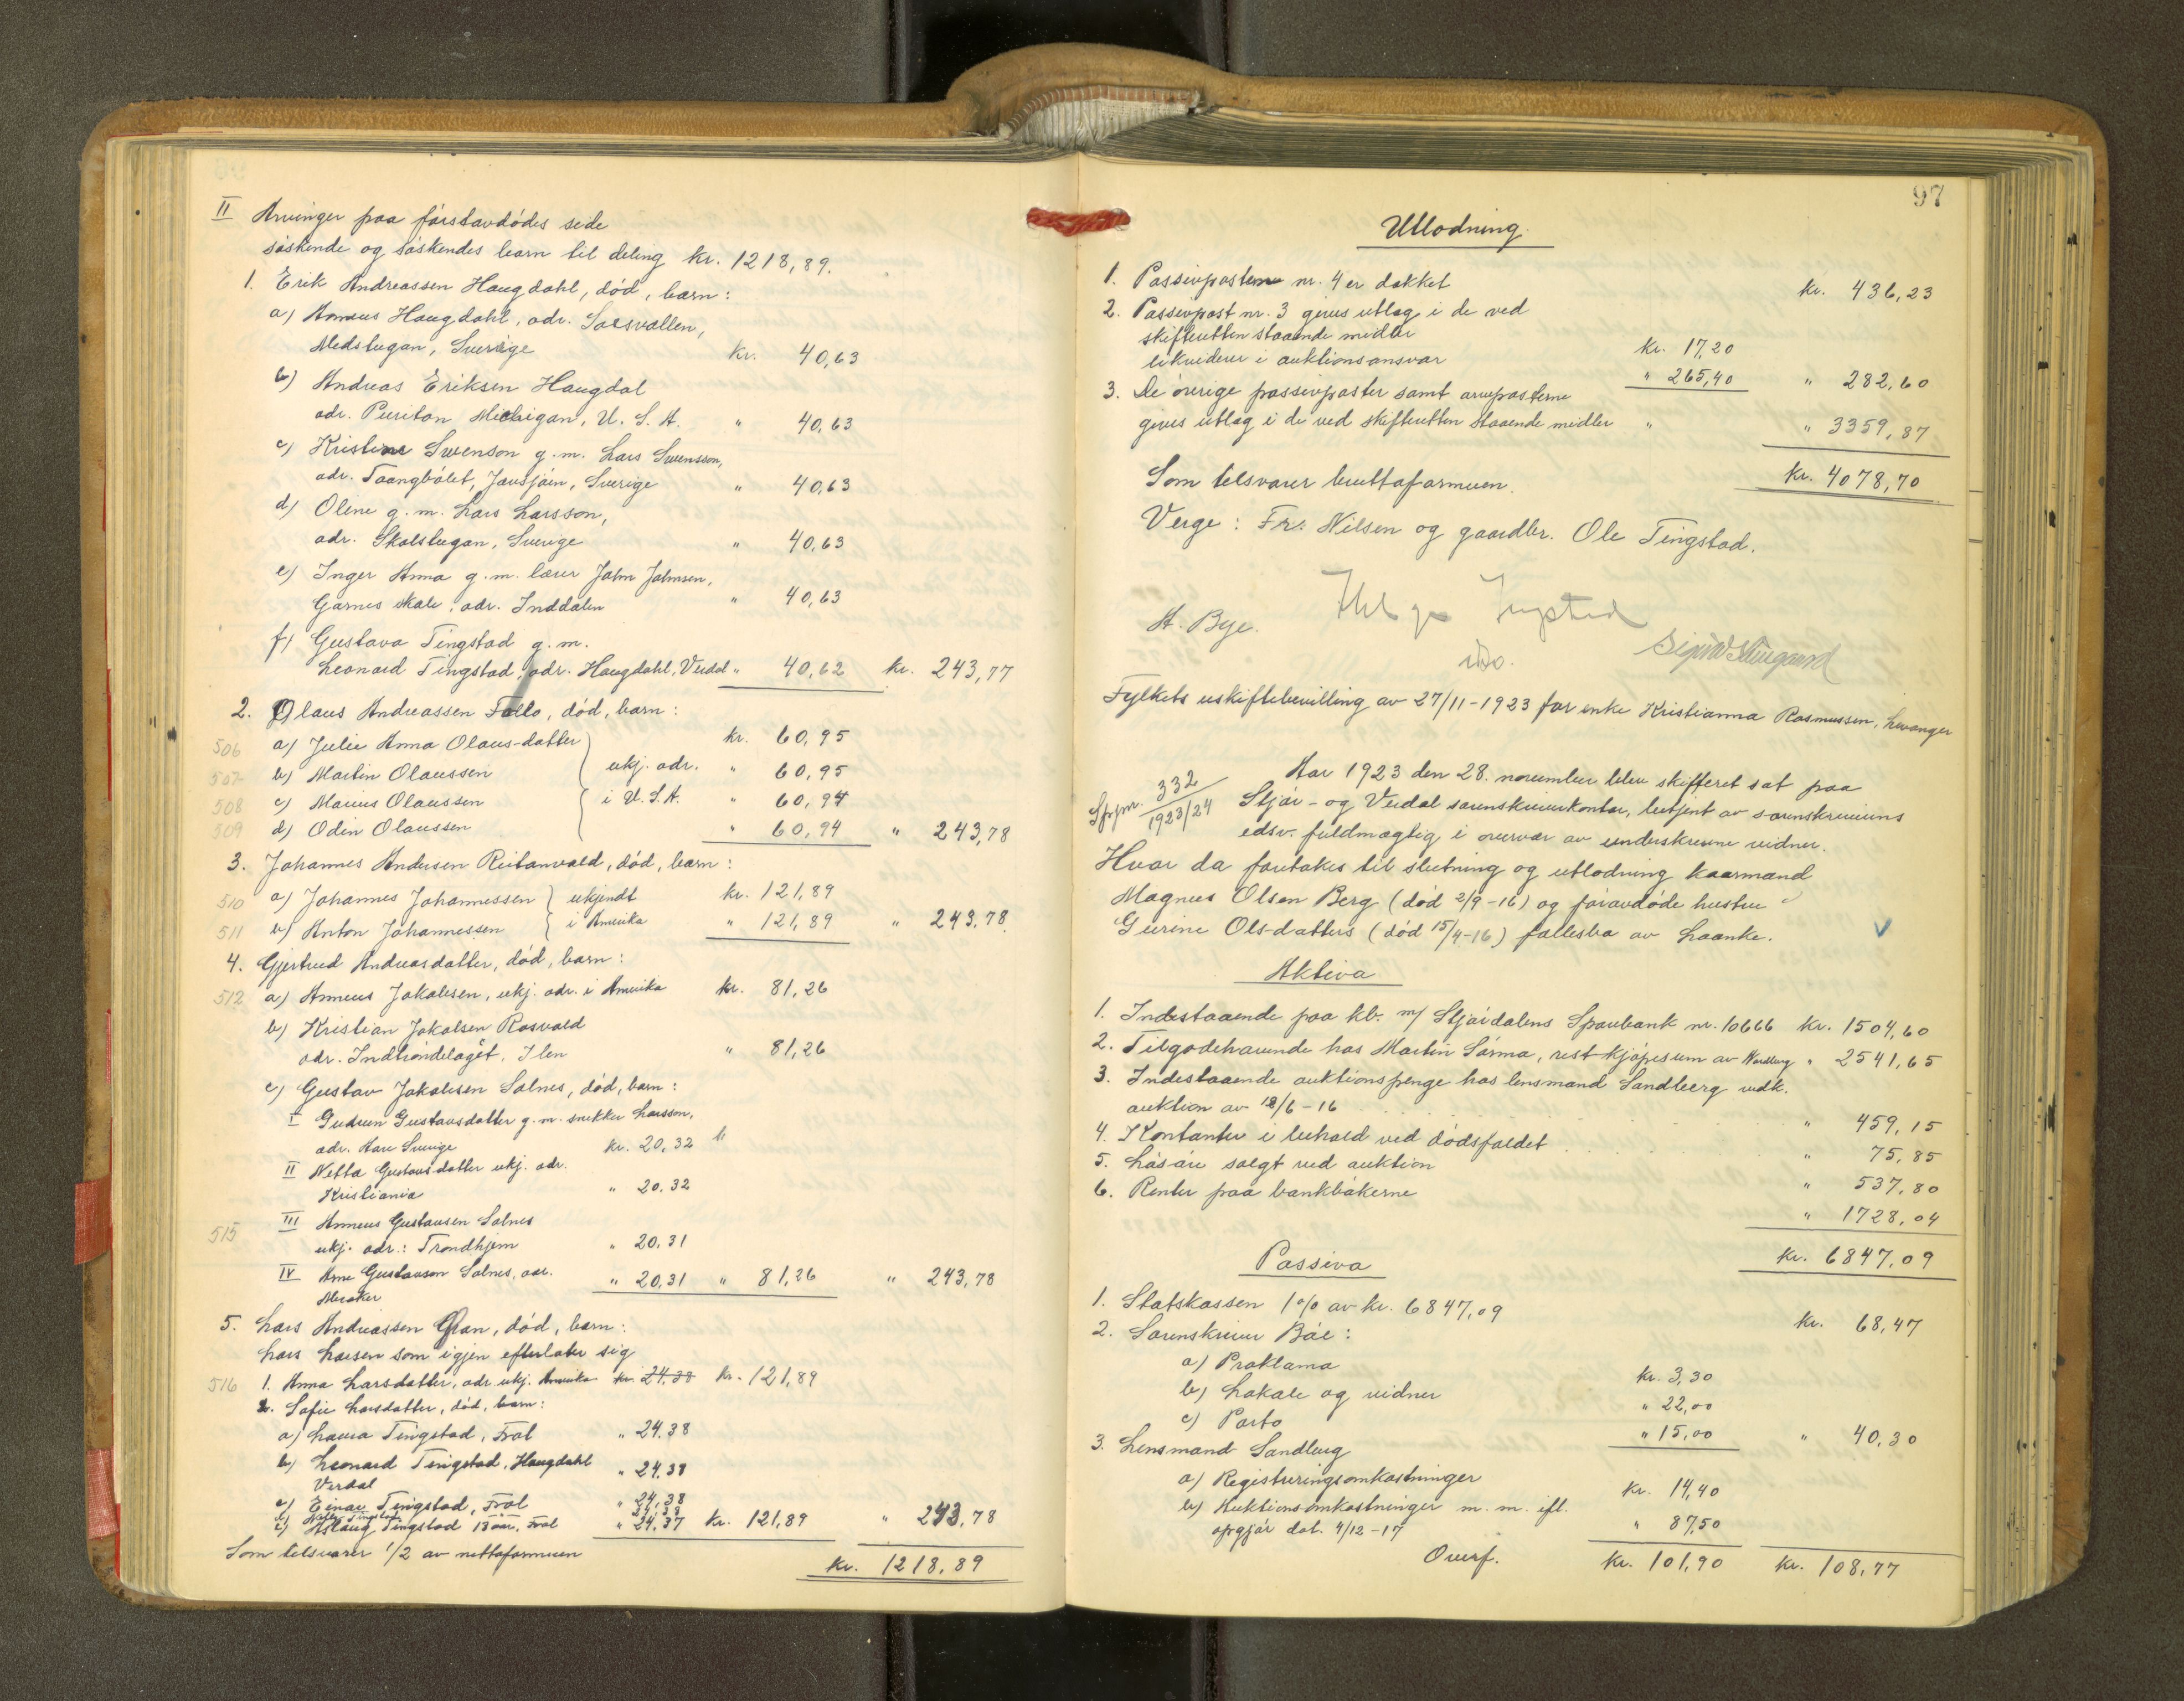 II Arvinger paa førstavdødes side
søskende og søskendes barn til deling kr. 1218,89.
1. Erik Andreassen Haugdahl, død, barn:
a) Anneus Haugdahl, adr. Saesvallen,
Medstugan, Sverige kr. 40,63
b) Andreas Eriksen Haugdal
adr. Puritan Michigan, U. S. A. " 40,63
c) Kristine Swenson g.m. Lars Swensson,
adr. Taangbölet, Jævsjøin, Sverige " 40,63
d) Oline g.m. Lars Larsson,
adr. Skalstugan, Sverige " 40,63
e) Inger Anna g.m. lærer John Johnsen,
Garnes skole, adr. Inddalen " 40,63
f) Gustava Tingstad g.m.
Leonard Tingstad, adr. Haugdahl, Verdal " 40,62 kr. 243,77
2. Olaus Andreassen Fallo, død, barn:
506 a) Julie Anna Olaus-datter kr. 60,95
507 b) Martin Olaussen ukj. adr. " 60,95
508 c) Marius Olaussen i U.S.A. " 60,94
509 d) Odin Olaussen " 60,94 " 243,78
3. Johannes Andersen Reitanvald, død, barn:
510 a) Johannes Johannessen ukjendt kr. 121,89
511 b) Anton Johannessen i Amerika " 121,89 " 243,78
4. Gjertrud Andreasdatter, død, barn:
512 a) Anneus Jakobsen, ukj. adr. i Amerika kr. 81,26
b) Kristian Jakobsen Rosvald
adr. Indtrøndelaget, Ilen " 81,26
c) Gustav Jakobsen Solnes, død, barn:
I Gudrun Gustavsdatter g.m. snekker Larsson,
adr. Aare Sverige kr. 20,32
II Netta Gustavsdatter ukj. adr.
Kristiania " 20,32
515 III Anneus Gustavsen Solnes
ukj. adr.: Trondhjem " 20,31
IV Arne Gustavson Solnes, adr. " 20,31 " 81,26 " 243,78
Meraker
5. Lars Andreassen Gran, død, barn:
Lars Larsen som igjen efterlater sig
516 1. Anna Larsdatter, adr. ukj. Amerika kr. 24,38 kr. 121,89
2. Sofie Larsdatter, død, barn:
a) Laura Tingstad, Frol " 24,38
b) Leonard Tingstad, Haugdahl " 24,38
Verdal
c) Einar Tingstad, Frol " 24,38
d) Tingstad 24,38
e) Aslaug Tingstad 13 aar, Frol " 24,37 kr. 121,89 " 243,78
Som tilsvarer 1/2 av nettoformuen kr. 1218,89
97
Utlodning.
1. Passivposten nr. 4 er dækket kr. 436,23
2. Passivpost nr. 3 gives utlæg i de ved
skifteretten staaende midler kr. 17,20
likviderer i auktionsansvar " 265,40 " 282,60
3. De øvrige passivposter samt arveposterne
gives utlæg i de ved skifteretten staaende midler " " 3359,87
Som tilsvarer bruttoformuen. kr. 4078,70
Verge: Fr. Nilsen og gaardbr. Ole Tingstad.
A. Bye.
Fylkets uskiftebevilling av 27/11-1923 for enke Kristianna Rasmussen, Levanger
Aar 1923 den 28. november blev skifteret sat paa
332 1923/24 Stjør- og Verdal sorenskriverkontor, betjent av sorenskriverens
edsv. fuldmægtig i overvær av underskrevne vidner.
Hvor da foretakes til slutning og utlodning kaarmand
Magnus Olsen Berg (død 2/9-16) og føravdøde hustru
Gurine Ols-datters (død 15/4-16) fællesbo av Laanke.
Aktiva
1. Indestaaende paa kb. m/ Stjørdalens Sparebank nr. 10666 kr. 1504,60
2. Tilgodehavende hos Martin Sørmo, rest kjøpesum av " 2541,65
3. Indestaaende auktionspenge hos lensmand Sandberg vedk.
auktion av 18/6-16 " 459,15
4. Kontanter i behold ved dødsfaldet " 75,85
5. Løsøre solgt ved auktion " 537,80
6. Renter paa bankbøkerne " 1728,04
kr. 6847,09
Passiva
1. Statskassen 1% av kr. 6847,09 kr. 68,47
2. Sorenskriver Bøe:
a) Proklama kr. 3,30
b) Lokale og vidner " 22,00
c) Porto " 15,00 " 40,30
3. Lensmand Sandberg
a) Registreringsomkostninger kr. 14,40
b) Auktionsomkostninger m. m. ifl.
opgjør dat. 4/12-17 " 87,50
Overf. kr. 101,90 kr. 108,77